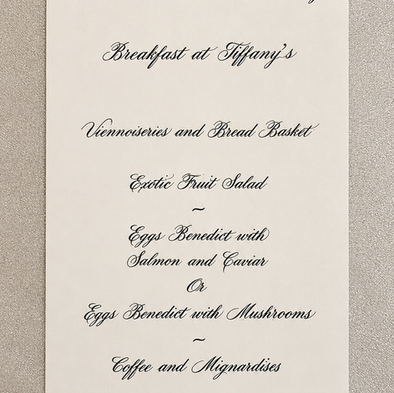 Breakfast at Tiffany's
Viennoiseries and Bread Basket
Exotic Fruit Salad
~
Eggs Benedict with
Salmon and Caviar
Or
Eggs Benedict with Mushrooms
~
Coffee and Mignardises